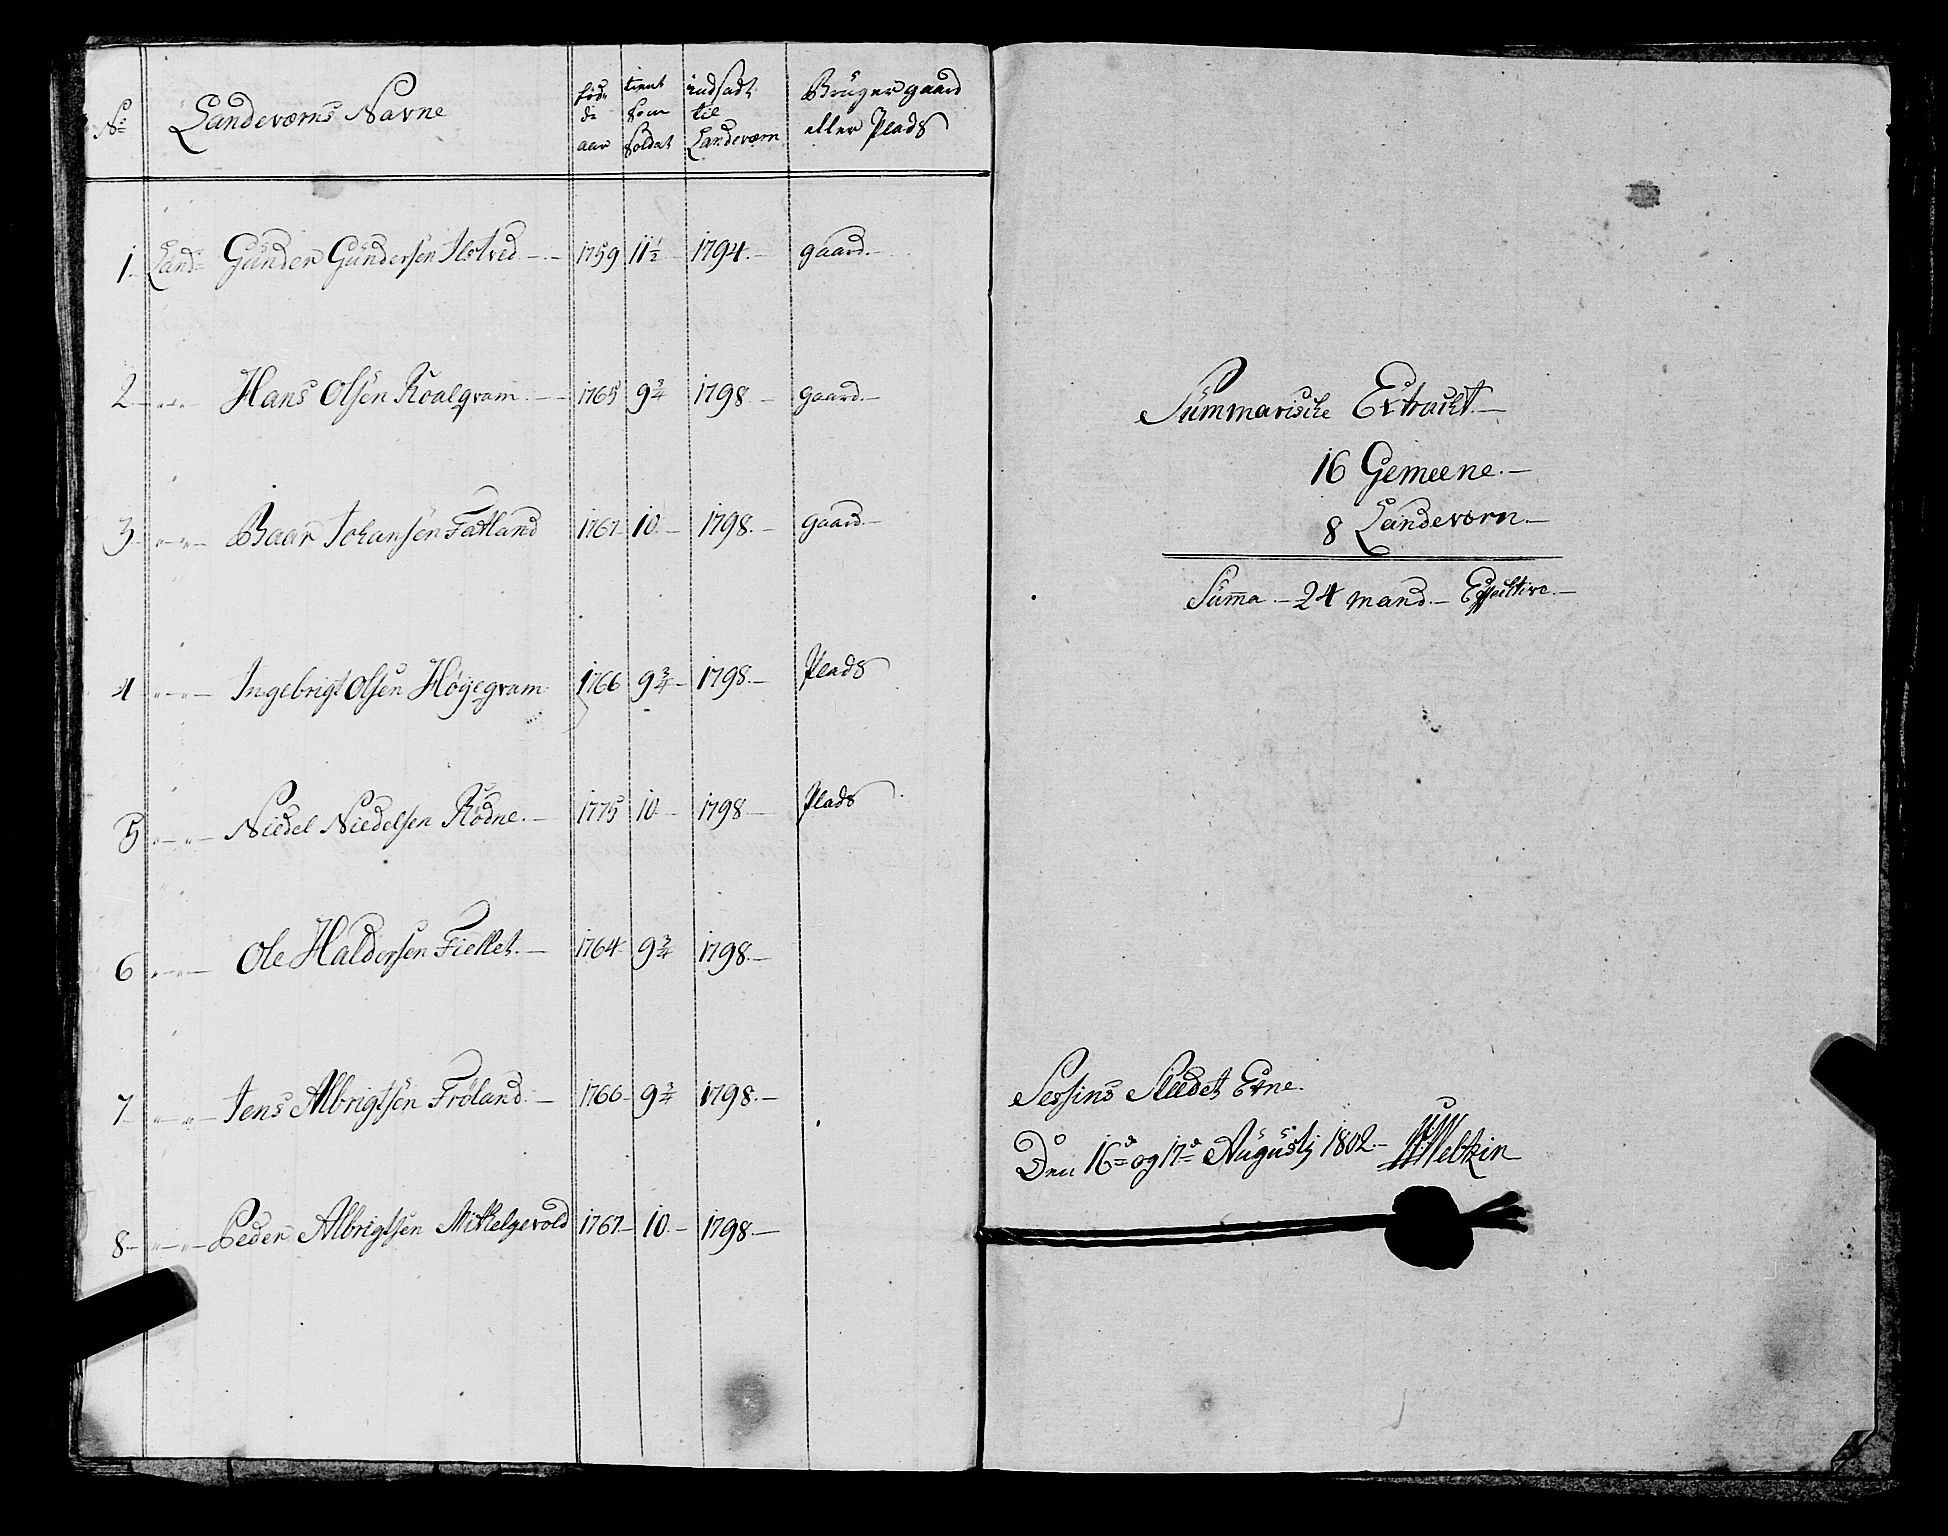 No Landeværns Navne fødde aar tient som Soldat indsadt til Landeværn Bruger gaard eller Plads
1. Land= Gunder Gundersen Ilstved 1759 11½ 1794.— gaard.—
2 — " — " — Hans Olsen Roalqvam.— 1765 9¾ 1798 — gaard.—
3 — " — " — Baar Johansen Fatland 1767 10.— 1798.— gaard.—
4 " — " — Ingebrigt Olsen Høyeqvam 1766 9¾ — 1798.— Plads
5 " — " — Niedel Niedelsen Rødne.— 1775 10 — 1798 — Plads
6 " — " — Ole Haldorsen Fiellet.— 1764 9¾ 1798.—
7 " — " — Jens Albrigtsen Frøland.— 1766 9¾ 1798.—
8 — " — " — Peder Albrigtsen Mikkelgevold 1767 — 10 — 1798.—
Summarische Extract.—
16 Gemeene.—
8 Landeværn.—
Summa.— 24 mand.— Effective.—
Sessins Stædet Etne.
Den 16de og 17de Augustj 1802.—